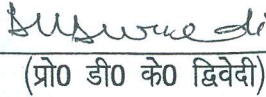 (प्रो0 डी0 के0 द्विवेदी)